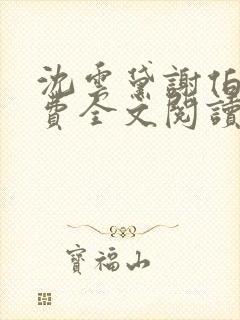 沈雲黛謝伯
費全文閱讀
寶福山